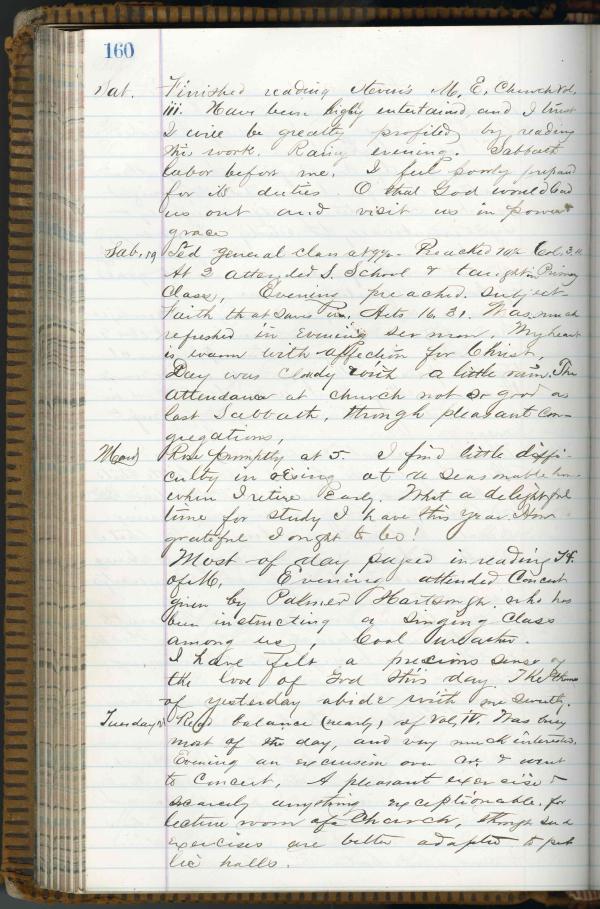 160
Sat. Finished reading Steven's M. E. Church Vol.
iii. Have been highly entertained, and I trust
I will be greatly profited by reading
this work. Rainy evening. Sabbath
labor before me. I feel poorly prepared
for its duties. O that God would
us out and visit us in power &
grace
Sab, 19 Led general class at 9½. Preached 10½ Col. 3.
At 2 attended S. School & taught Primary
Class, Evening preached. Subject
Faith that saves Acts 16. 31. Was much
refreshed in evening sermon. My heart
is warm with affection for Christ,
Day was cloudy with a little rain. The
attendance at church not so good as
last Sabbath, though pleasant con-
gregations,
Mond Rose promptly at 5. I find little diffi-
culty in rising at a seasonable hour
when I retire early. What a delightful
time for study I have this year. How
grateful I ought to be!
Most of day passed in reading
of M, Evening attended Concert
given by Palmer Hartsough, who has
been instructing a singing class
among us, Cool weather.
I have felt a precious sense of
the love of God this day. The
of yesterday abide with me sweetly.
Tuesday 21 Read balance (nearly) of Vol, IV. Was busy
most of the day, and very much interested.
Evening an excursion over & went
to Concert. A pleasant exercise &
scarcely anything exceptionable, for
lecture room of a Church, though such
exercises are better adapted to pub
lic halls.